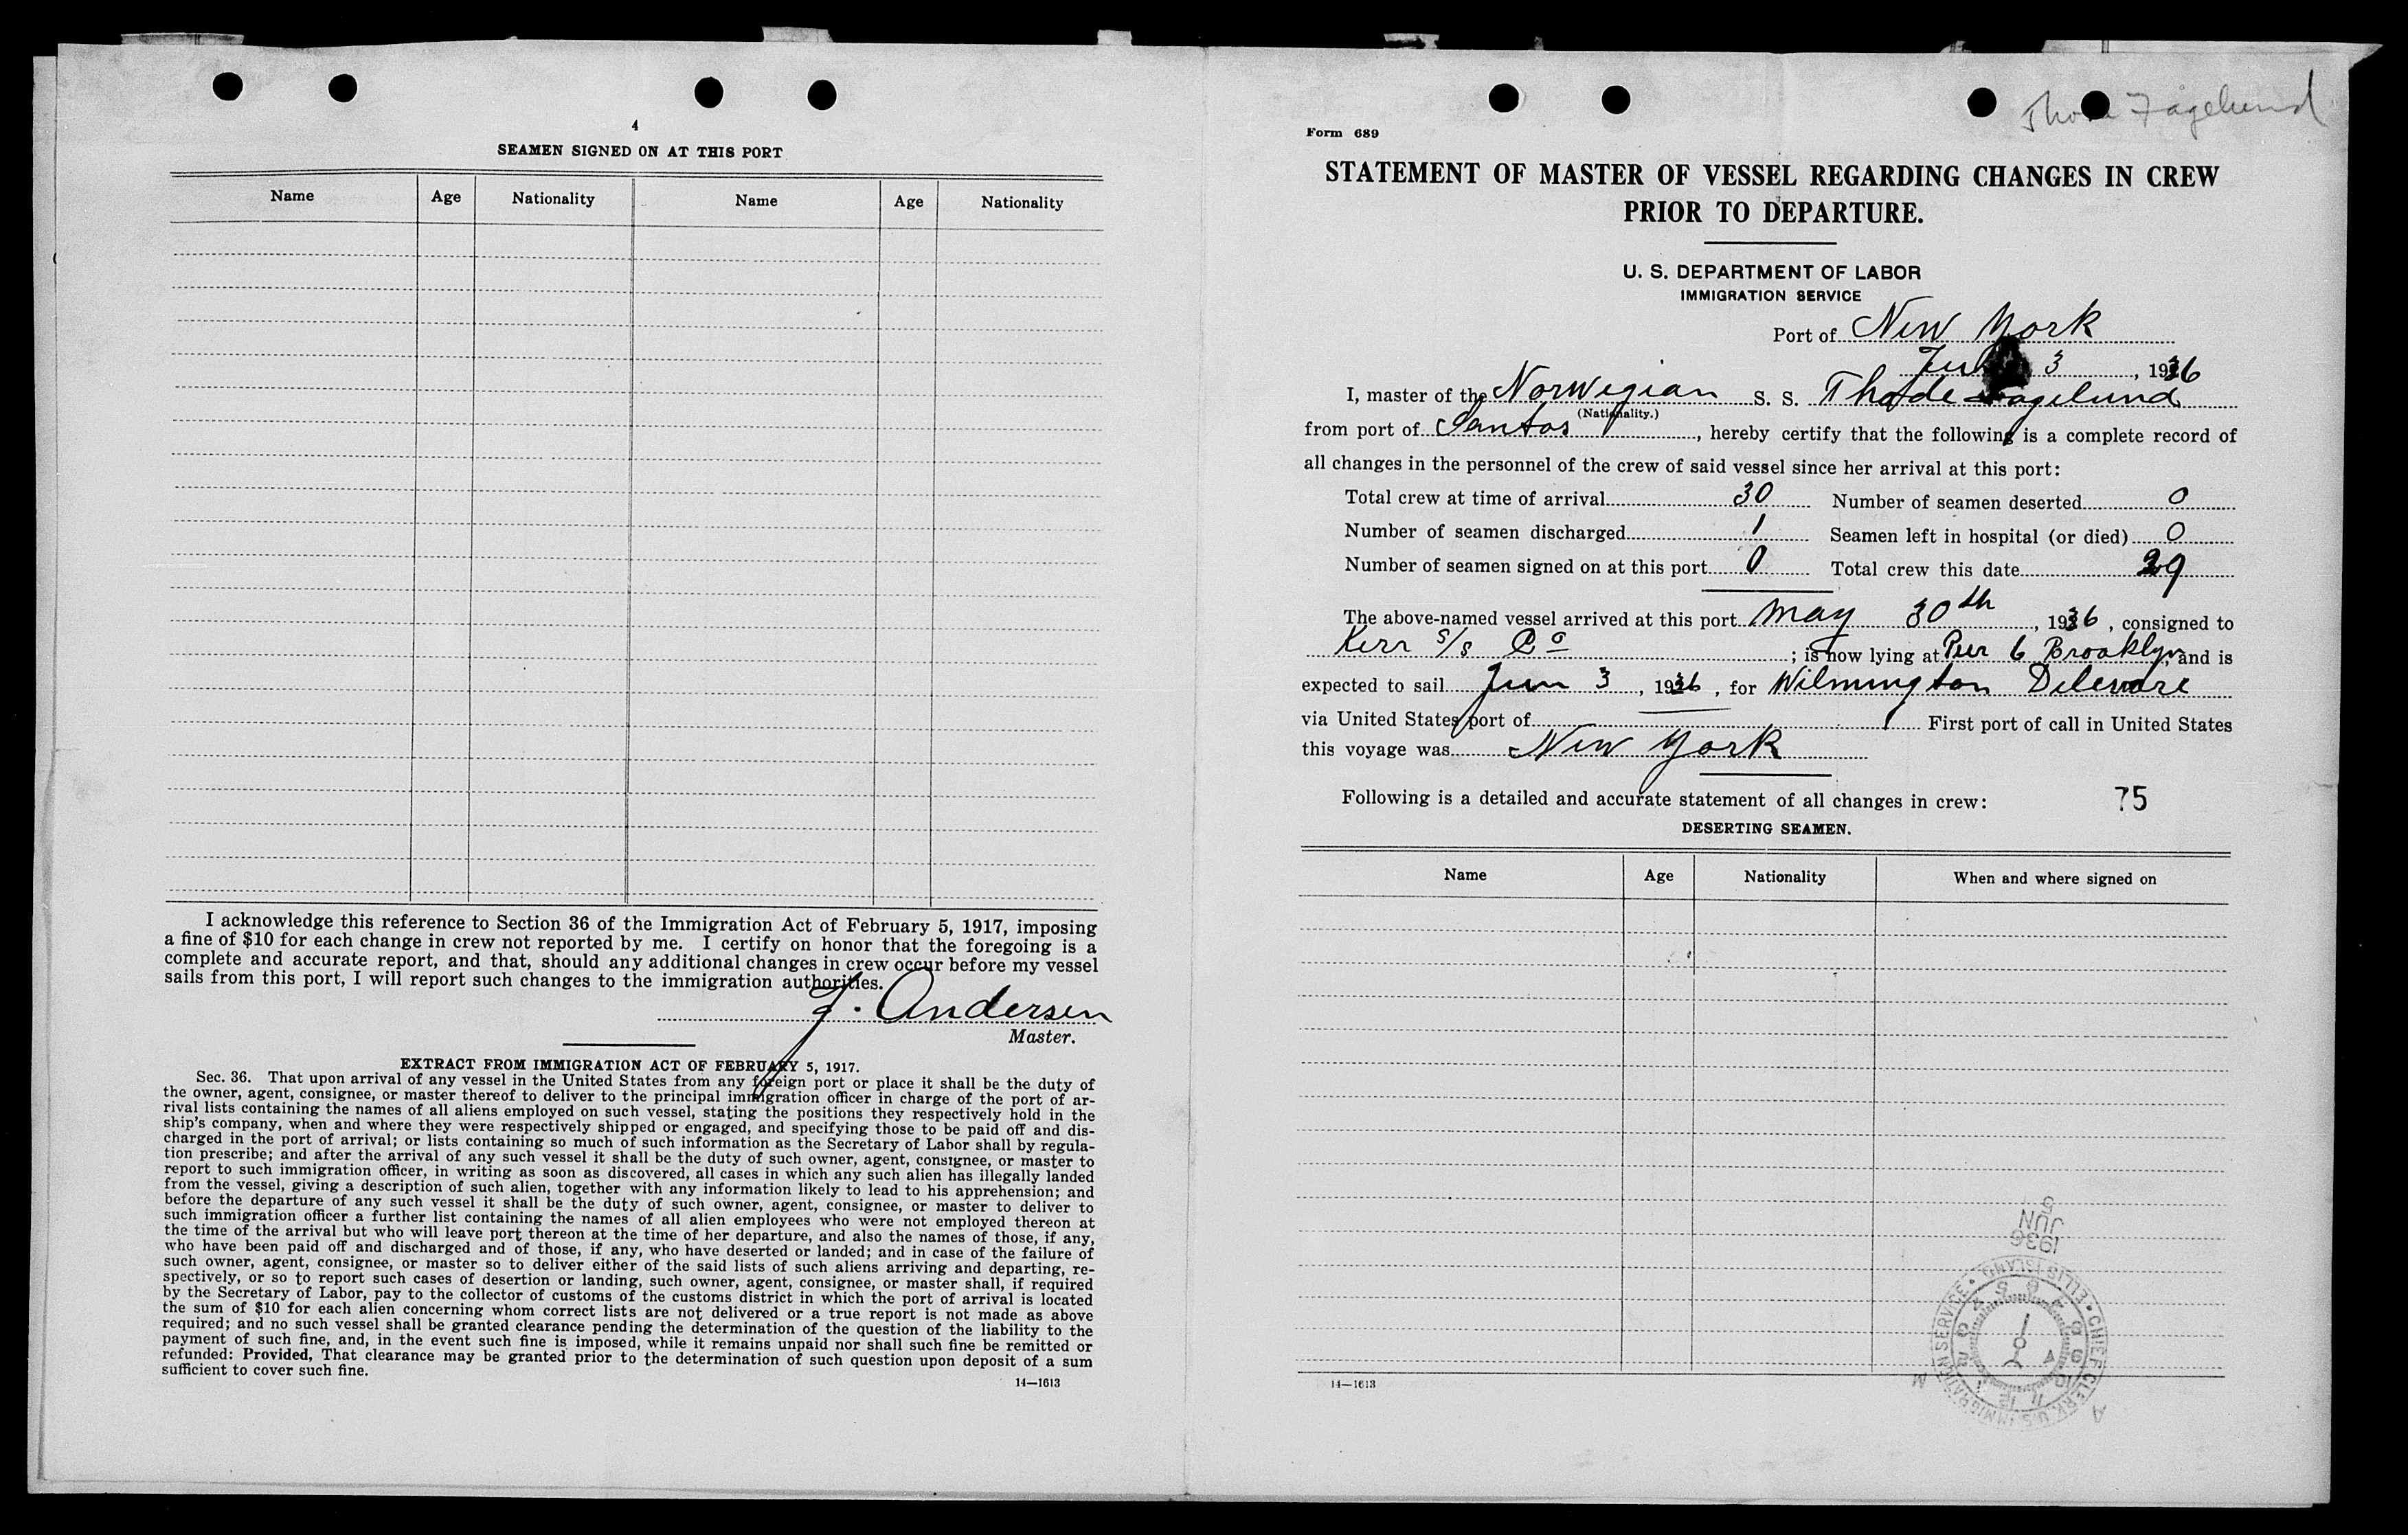 4
SEAMEN SIGNED ON AT THIS PORT
Name Age Nationality Name Age Nationality
I acknowledge this reference to Section 36 of the Immigration Act of February 5, 1917, imposing
a fine of $10 for each change in crew not reported by me. I certify on honor that the foregoing is a
complete and accurate report, and that, should any additional changes in crew occur before my vessel
sails from this port, I will report such changes to the immigration authorities.
J. Andersen
Master.
EXTRACT FROM IMMIGRATION ACT OF FEBRUARY 5, 1917.
Sec. 36. That upon arrival of any vessel in the United States from any foreign port or place it shall be the duty of
the owner, agent, consignee, or master thereof to deliver to the principal immigration officer in charge of the port of ar-
rival lists containing the names of all aliens employed on such vessel, stating the positions they respectively hold in the
ship's company, when and where they were respectively shipped or engaged, and specifying those to be paid off and dis-
charged in the port of arrival; or lists containing so much of such information as the Secretary of Labor shall by regula-
tion prescribe; and after the arrival of any such vessel it shall be the duty of such owner, agent, consignee, or master to
report to such immigration officer, in writing as soon as discovered, all cases in which any such alien has illegally landed
from the vessel, giving a description of such alien, together with any information likely to lead to his apprehension; and
before the departure of any such vessel it shall be the duty of such owner, agent, consignee, or master to deliver to
such immigration officer a further list containing the names of all alien employees who were not employed thereon at
the time of the arrival but who will leave port thereon at the time of her departure, and also the names of those, if any,
who have been paid off and discharged and of those, if any, who have deserted or landed; and in case of the failure of
such owner, agent, consignee, or master so to deliver either of the said lists of such aliens arriving and departing, re-
spectively, or so to report such cases of desertion or landing, such owner, agent, consignee, or master shall, if required
by the Secretary of Labor, pay to the collector of customs of the customs district in which the port of arrival is located
the sum of $10 for each alien concerning whom correct lists are not delivered or a true report is not made as above
required; and no such vessel shall be granted clearance pending the determination of the question of the liability to the
payment of such fine, and, in the event such fine is imposed, while it remains unpaid nor shall such fine be remitted or
refunded: Provided, That clearance may be granted prior to the determination of such question upon deposit of a sum
sufficient to cover such fine.
14—1613
Fagelund
Form 689
STATEMENT OF MASTER OF VESSEL REGARDING CHANGES IN CREW
PRIOR TO DEPARTURE.
U. S. DEPARTMENT OF LABOR
IMMIGRATION SERVICE
Port of New York
3, 1936
I, master of the Norwegian S. S. Thode Fagelund
(Nationality.)
from port of Santos, hereby certify that the following is a complete record of
all changes in the personnel of the crew of said vessel since her arrival at this port:
Total crew at time of arrival 30 Number of seamen deserted 0
Number of seamen discharged 1 Seamen left in hospital (or died) 0
Number of seamen signed on at this port 0 Total crew this date 29
The above-named vessel arrived at this port May 30th, 1936, consigned to
Kerr S/S Co; is now lying at Pier 6 Brooklyn, and is
expected to sail Jun 3, 1936, for Wilmington Delevare
via United States port of First port of call in United States
this voyage was New York
Following is a detailed and accurate statement of all changes in crew: 75
DESERTING SEAMEN.
Name Age Nationality When and where signed on
1936
JUN
5
CHIEF CLERK, U.S. IMMIGRATION SERVICE • ELLIS ISLAND •
14—1613